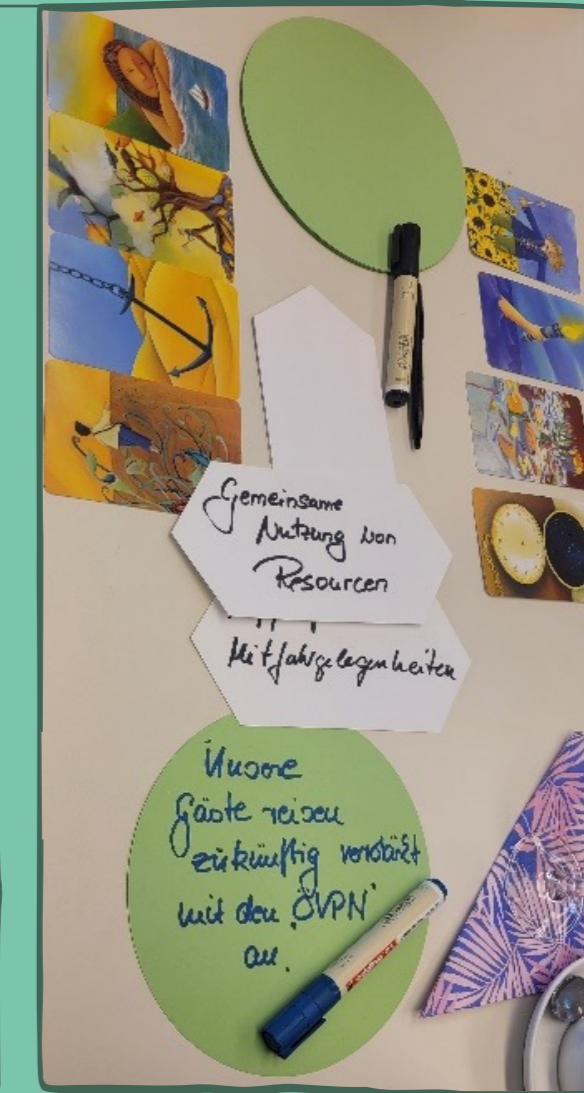 Gemeinsame
Nutzung von
Resourcen
Mitfahrgelegenheiten
Unsere
Gäste reisen
zukünftig verstärkt
mit den „ÖVPN“
an.
edding